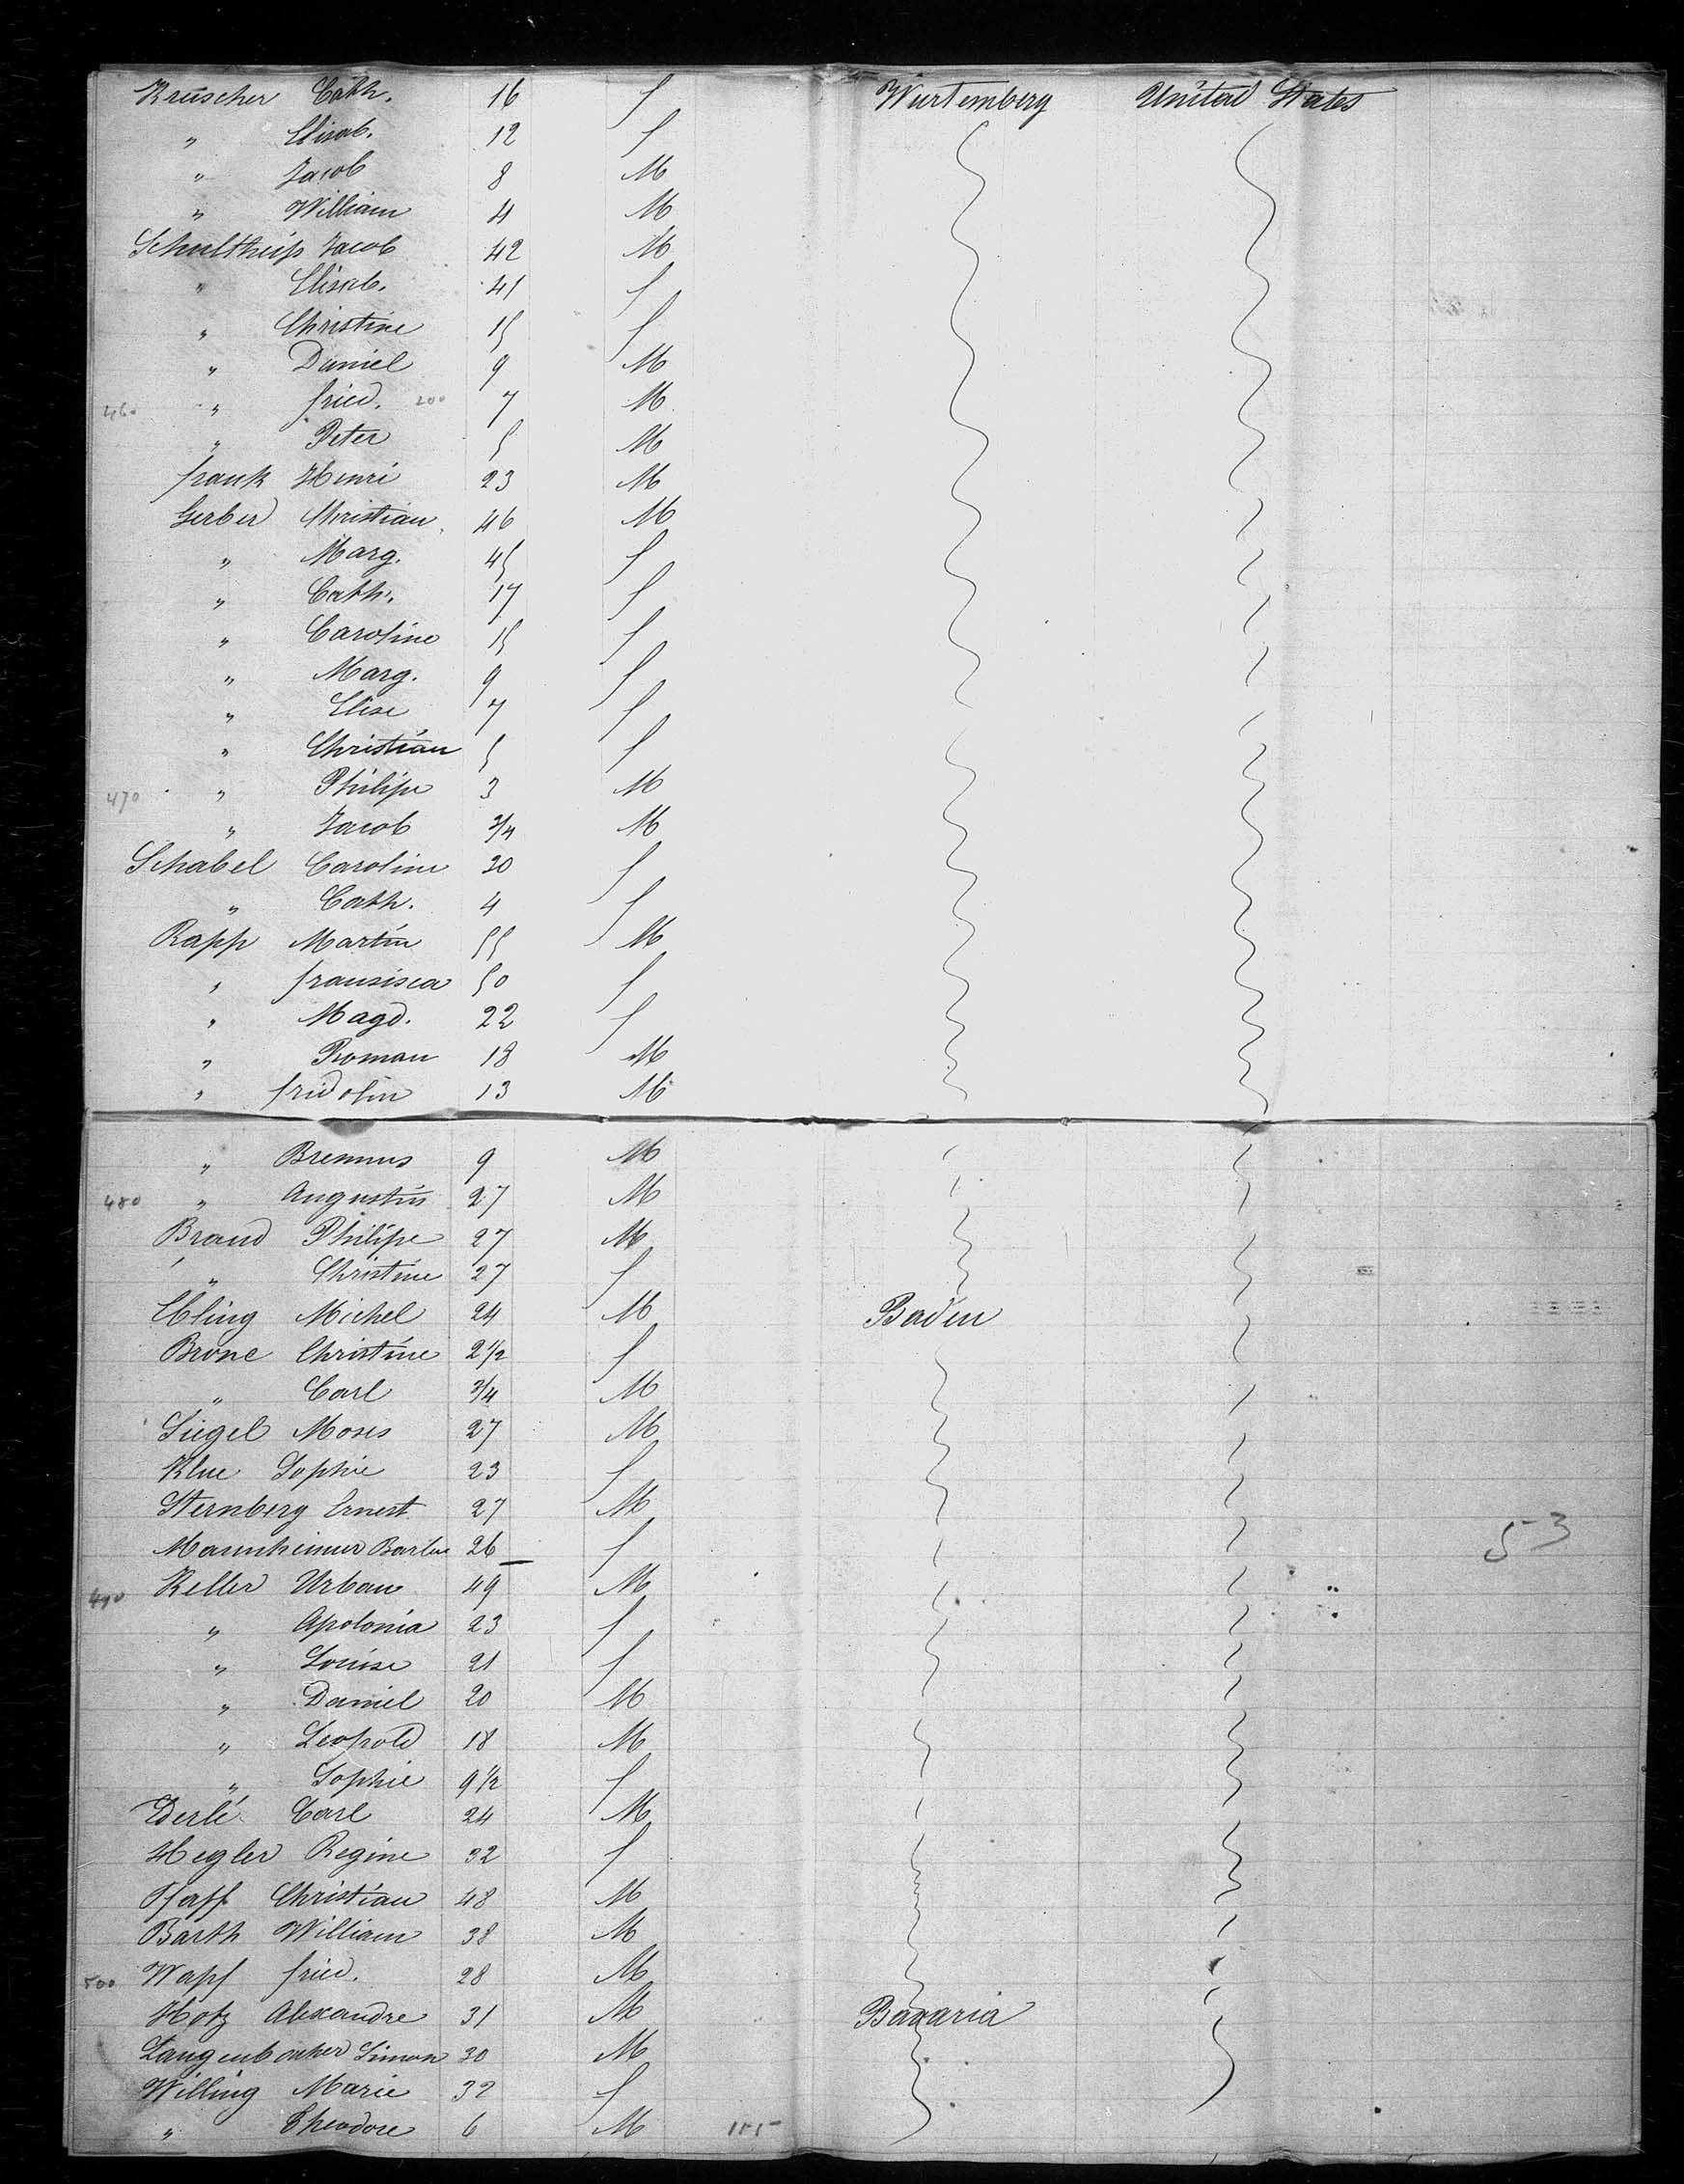 Kruscher Cath. 16 f Wurtemberg United States
" Elisab. 12 f
" Jacob 8 M
" William 4 M
Schultheiß Jacob 42 M
" Elisab. 41 f
" Christine 15 f
" Daniel 9 M
460 " fried. 200 7 M
" Peter 5 M
frank Henri 23 M
Gerber Christian 46 M
" Marg. 45 f
" Cath. 17 f
" Caroline 15 f
" Marg. 9 f
" Elise 7 f
" Christian 5 f
470 " Philipe 3 M
" Jacob 3/4 M
Schabel Caroline 20 f
" Cath. 4 f
Rapp Martin 55 M
" fransisca 50 f
" Magd. 22 f
" Roman 18 M
" fridolin 13 M
" 9 M
480 " Augustin 27 M
Brand Philipe 27 M
" Christine 27 f
Ebling Michel 24 M Baden
Brone Christine 2 1/2 f
" Carl 3/4 M
Siegel Moses 27 M
Klue Sophie 23 f
Sternberg Ernest 27 M
53
Mannheimer 26 f
490 Keller Urban 49 M
" Apolonia 23 f
" Louise 21 f
" Daniel 20 M
" Leopold 18 M
" Sophie 9 1/2 f
Ederlé Carl 24 M
Hegler Regine 32 f
Pfaff Christian 48 M
Barth William 38 M
500 Wapf fried. 28 M
Hotz Alexandre 31 M Bavaria
Langenbacher Simon 30 M
Willing Marie 32 f
" Theodore 6 M